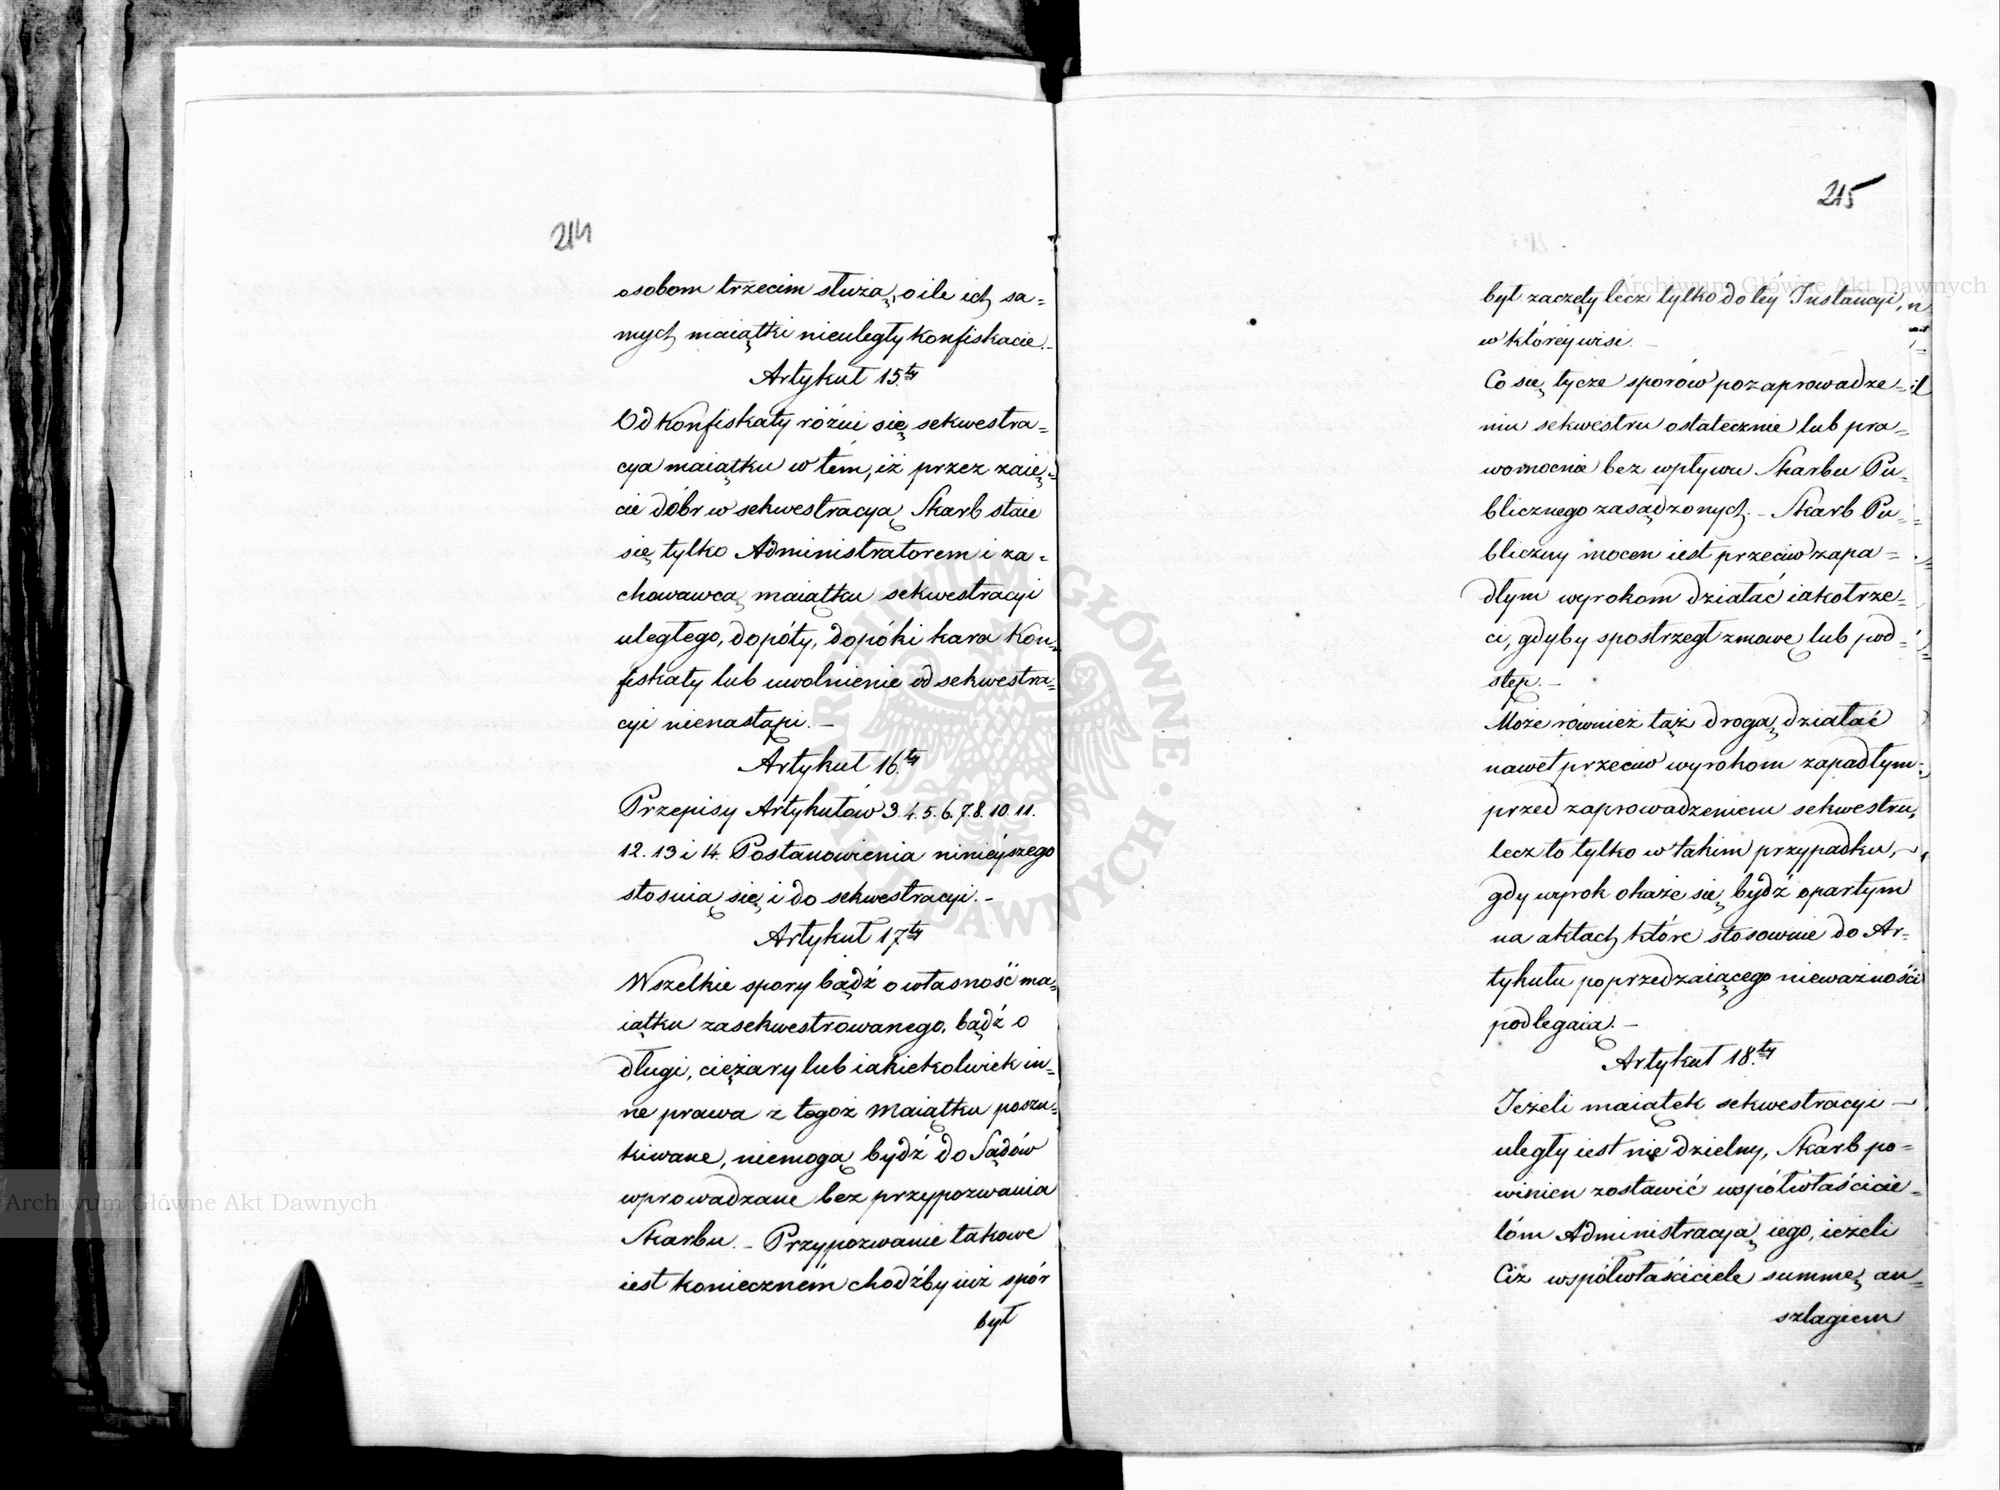 214
osobom trzecim służą, o ile ich sa=
mych maiątki nieuległy konfiskacie.-
Artykuł 15.ty
Od Konfiskaty różni się sekwestra=
cya maiątku w tém, iż przez zaię=
cie dóbr w sekwestracyą Skarb staie
się tylko Administratorem i za=
chowawcą maiątku sekwestracyi
uległego, dopóty, dopóki kara Kon=
fiskaty lub uwolnienie od sekwestra=
cyi nienastąpi.-
Artykuł 16.ty
Przepisy Artykułów 3.4.5.6.7.8.10.11.
12.13 i 14. Postanowienia ninieyszego
stosuią się i do sekwestracyi.-
Artykuł 17.ty
Wszelkie spory bądź o własność ma=
iątku zasekwestrowanego, bądź o
długi, ciężary lub iakiekolwiek in=
ne prawa z tegoż Maiątku poszu=
kiwane, niemogą bydź do Sądów
wprowadzane bez przypozwania
Skarbu.- Przypozwanie takowe
iest koniecznem chodźby iuż spór
był
215
był zaczęty lecz tylko do tey Instancyi,
w którey wisi.-
Co się tycze sporów po zaprowadze=
niu sekwestru ostatecznie lub pra=
womocnie bez wpływu Skarbu Pu=
blicznego zasądzonych.- Skarb Pu=
bliczny mocen iest przeciw zapa=
dłym wyrokom działać iako trze=
ci, gdyby spostrzegł zmowę lub pod=
stęp.-
Może również tąż drogą działać
nawet przeciw wyrokom zapadłym
przed zaprowadzeniem sekwestru,
lecz to tylko w takim przypadku,
gdy wyrok okaże się bydź opartym
na aktach które stosownie do Ar=
tykułu poprzedzaiącego nieważności
podlegaią.-
Artykuł 18.ty
Jeżeli maiątek sekwestracyi
uległy iest nie dzielny, Skarb po=
winien zostawić współwłaścicie=
lóm Administracyą iego, ieżeli
Ciż współwłaściciele summę an=
szlagiem
Archiwum Główne Akt Dawnych
Archiwum Główne Akt Dawnych
ARCHIWUM GŁÓWNE AKT DAWNYCH